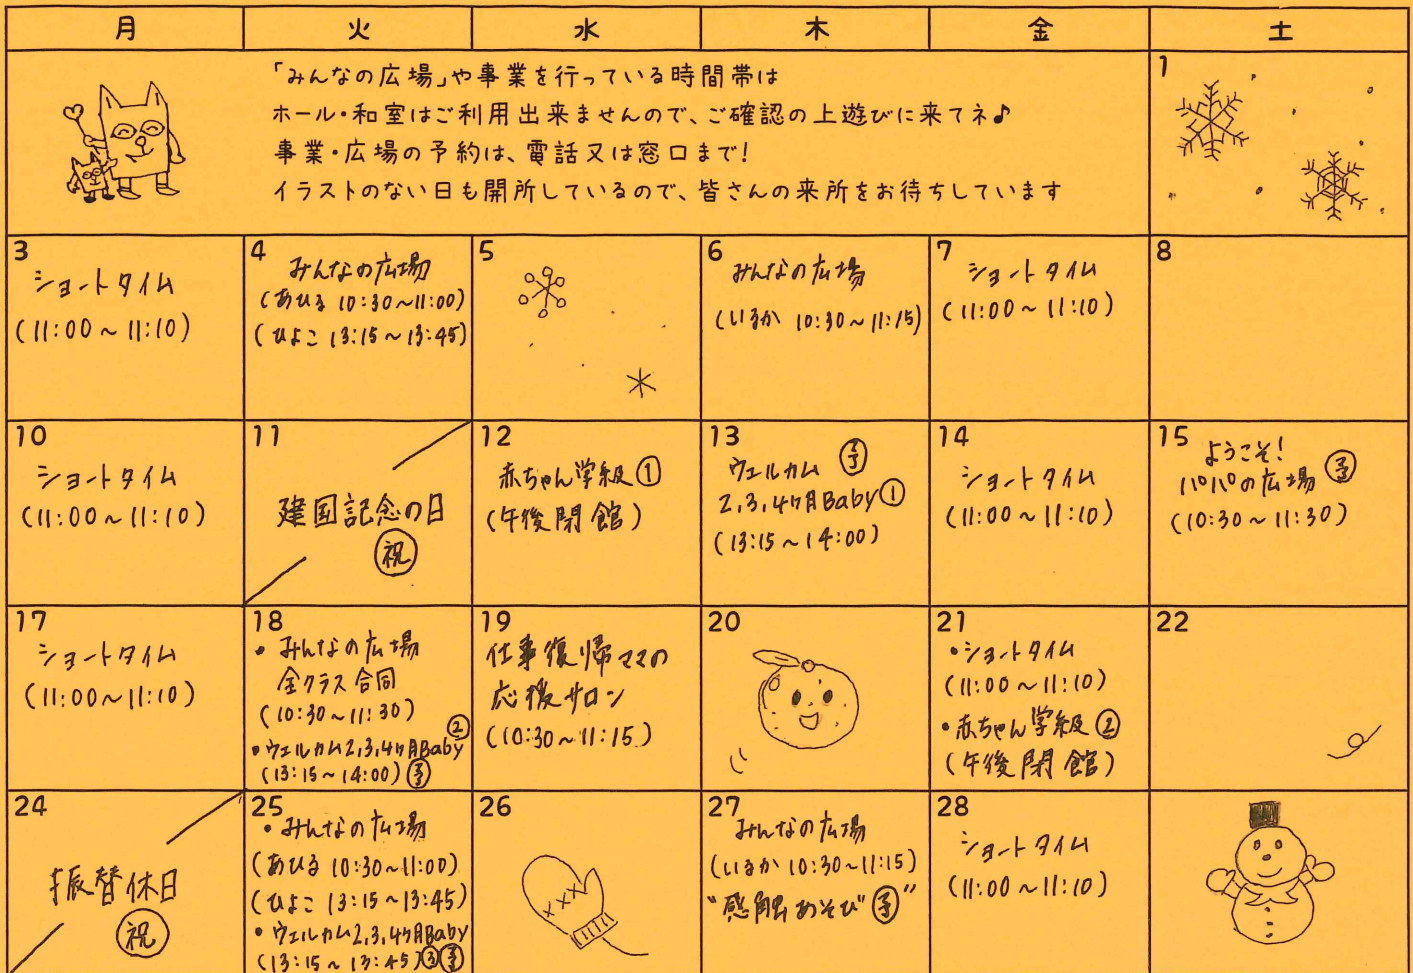 月 火 水 木 金 土
「みんなの広場」や事業を行っている時間帯は
ホール・和室はご利用出来ませんので、ご確認の上遊びに来てネ♪
事業・広場の予約は、電話又は窓口まで!
イラストのない日も開所しているので、皆さんの来所をお待ちしています
1
3
ショートタイム
(11:00~11:10)
4
みんなの広場
(あひる 10:30~11:00)
(ひよこ 13:15~13:45)
5
6
みんなの広場
(いるか 10:30~11:15)
7
ショートタイム
(11:00~11:10)
8
10
ショートタイム
(11:00~11:10)
11
建国記念の日
祝
12
赤ちゃん学級①
(午後閉館)
13
ウェルカム 予
2,3,4ヶ月Baby①
(13:15~14:00)
14
ショートタイム
(11:00~11:10)
15
ようこそ!
パパの広場 予
(10:30~11:30)
17
ショートタイム
(11:00~11:10)
18
・みんなの広場
全クラス合同
(10:30~11:30)
・ウェルカム2,3,4ヶ月Baby②
(13:15~14:00) 予
19
仕事復帰ママの
応援サロン
(10:30~11:15)
20
21
・ショートタイム
(11:00~11:10)
・赤ちゃん学級②
(午後閉館)
22
24
振替休日
祝
25
・みんなの広場
(あひる 10:30~11:00)
(ひよこ 13:15~13:45)
・ウェルカム2,3,4ヶ月Baby
(13:15~13:45)③予
26
27
みんなの広場
(いるか 10:30~11:15)
"感触あそび 予"
28
ショートタイム
(11:00~11:10)